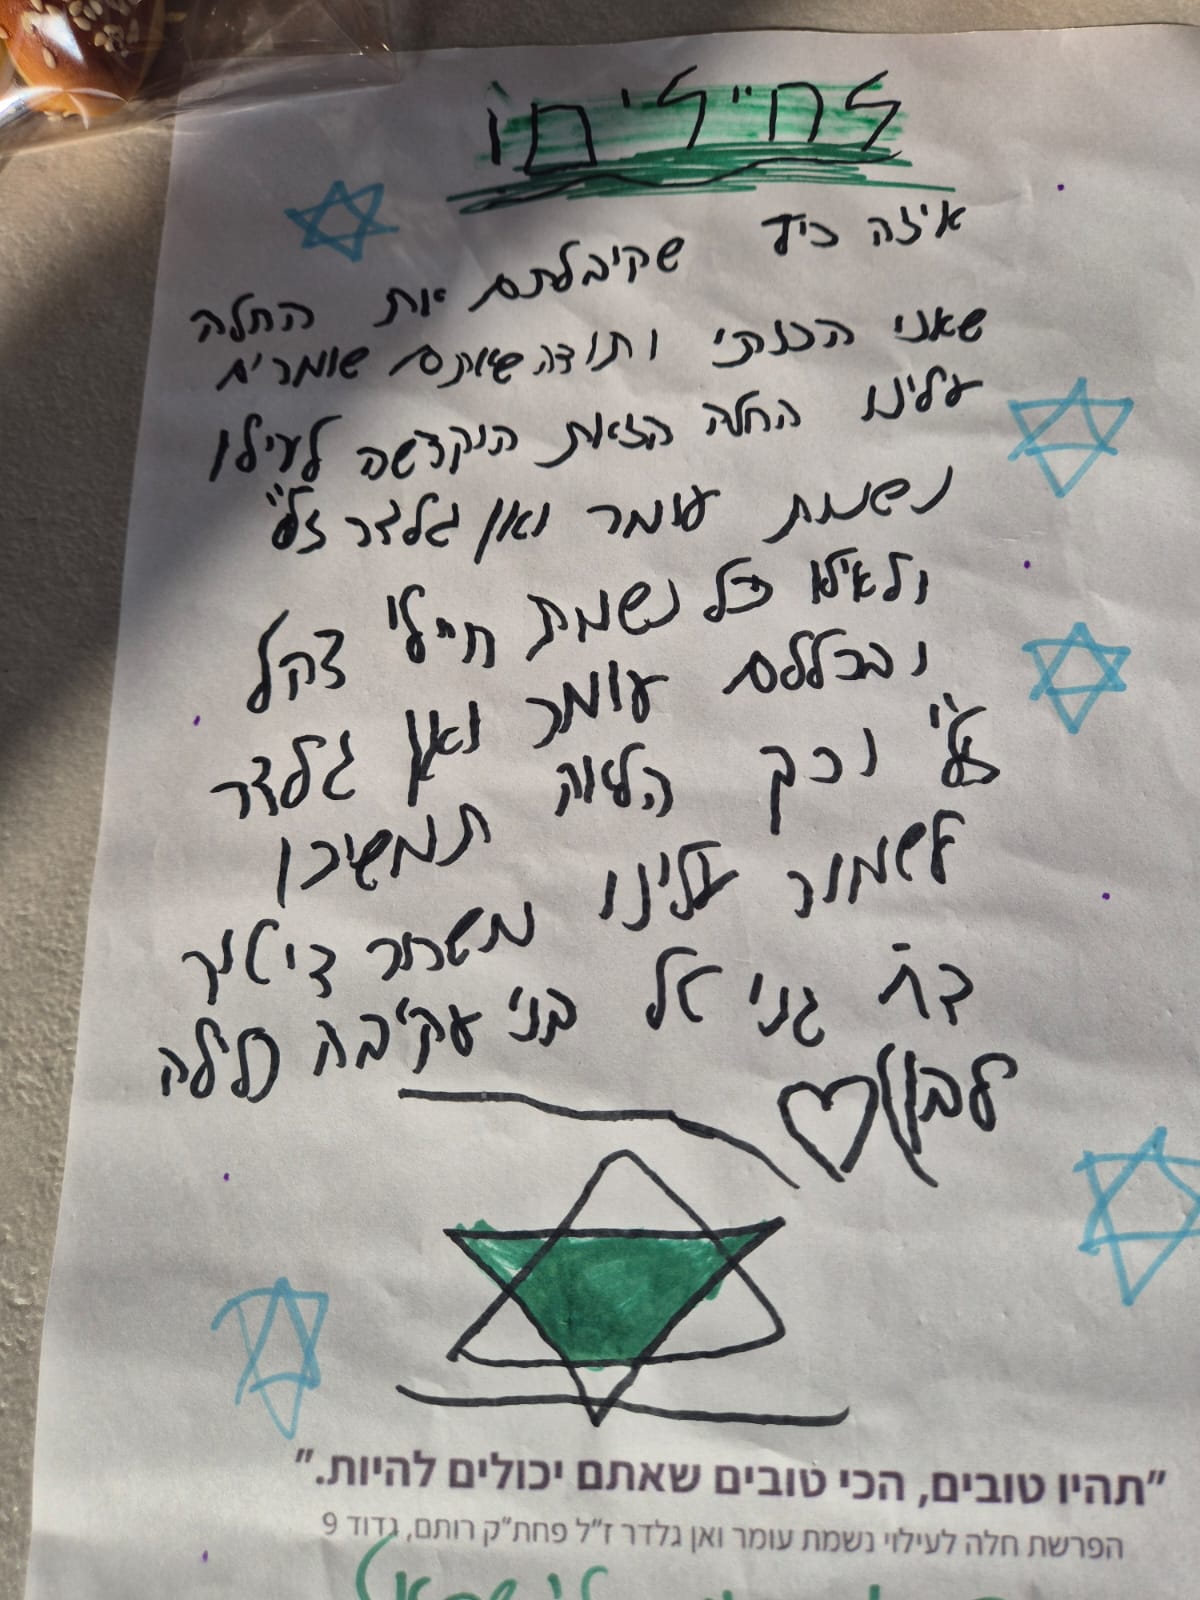 לחיילים
איזה כיף שקיבלתם את החלה
שאני הכנתי ותודה שאתם שומרים
עלינו החלה הזאת הוקדשה לעילו
נשמת עומר ואן גלדר ז"ל
ולאילו כל נשמת חיילי צהל
ובכללם עומר ואן גלדר
ז"ל וכך הלאה תמשיכו
לשמור עלינו
גני אל בני עקיבה לילה
לבן
"תהיו טובים, הכי טובים שאתם יכולים להיות."
הפרשת חלה לעילוי נשמת עומר ואן גלדר ז"ל פחת"ק רותם, גדוד 9